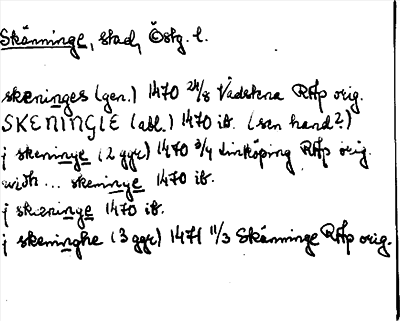 Skänninge, stad, Östg. l.
skeninges (gen.) 1470 24/8 Vadstena RAp orig.
SKENINGIE (abl.) 1470 ib. (sen hand?)
j skeninye (2 ggr) 1470 3/4 Linköping RAp orig.
widh... skeninye 1470 ib.
j skæninge 1470 ib.
j skeninghe (3 ggr) 1471 11/3 Skänninge RAp orig.